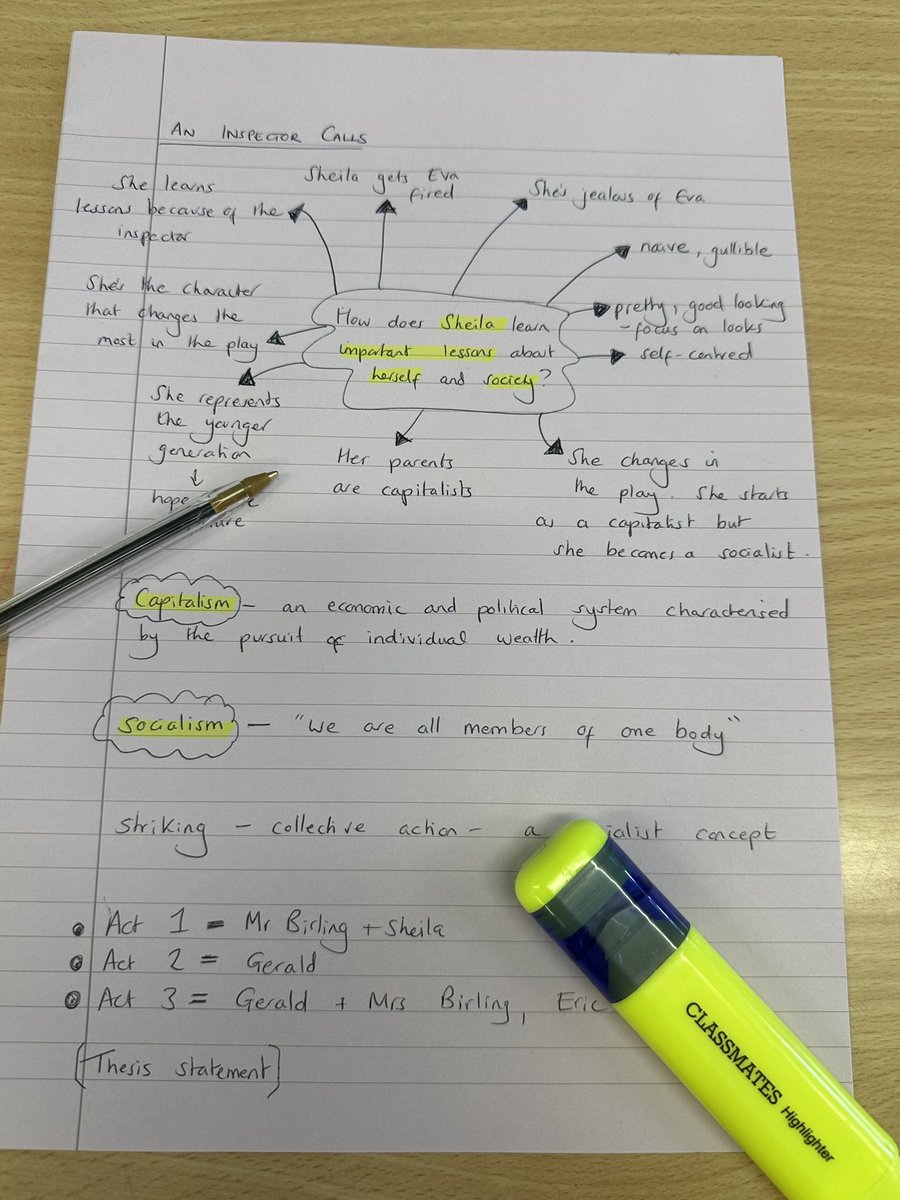 AN INSPECTOR CALLS
She learns
lessons because of the
inspector
Sheila gets Eva
fired
She's jealous of Eva
naive, gullible
pretty, good looking
- focus on looks
self-centred
She's the character
that changes the
most in the play
How does Sheila learn
important lessons about
herself and society?
She represents
the younger
generation
hope
Her parents
are capitalists
She changes in
the play. She starts
as a capitalist but
she becomes a socialist.
Capitalism - an economic and political system characterised
by the pursuit of individual wealth.
Socialism - "We are all members of one body"
Striking - collective action - a concept
Act 1 = Mr Birling + Sheila
Act 2 = Gerald
Act 3 = Gerald + Mrs Birling, Eric
[Thesis statement]
CLASSMATES Highlighter